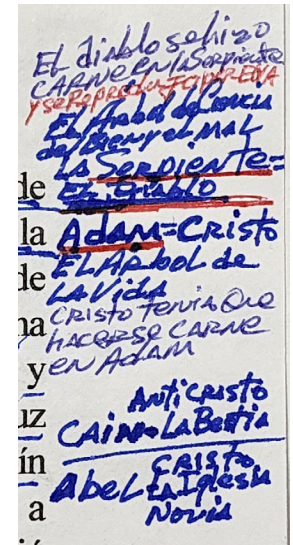 El diablo se hizo
CARNE en la Serpiente
y se Reprodujo por EVA
El Arbol de Ciencia
del Bien y el MAL
LA Serpiente=
de EL Diablo
la Adam=Cristo
de EL Arbol de
LA Vida
na CRISTO TENIA Que
HACERSE CARNE
y en Adam
Anticristo
uz CAin=La Bestia
ín CRISTO
Abel La Iglesia
a Novia